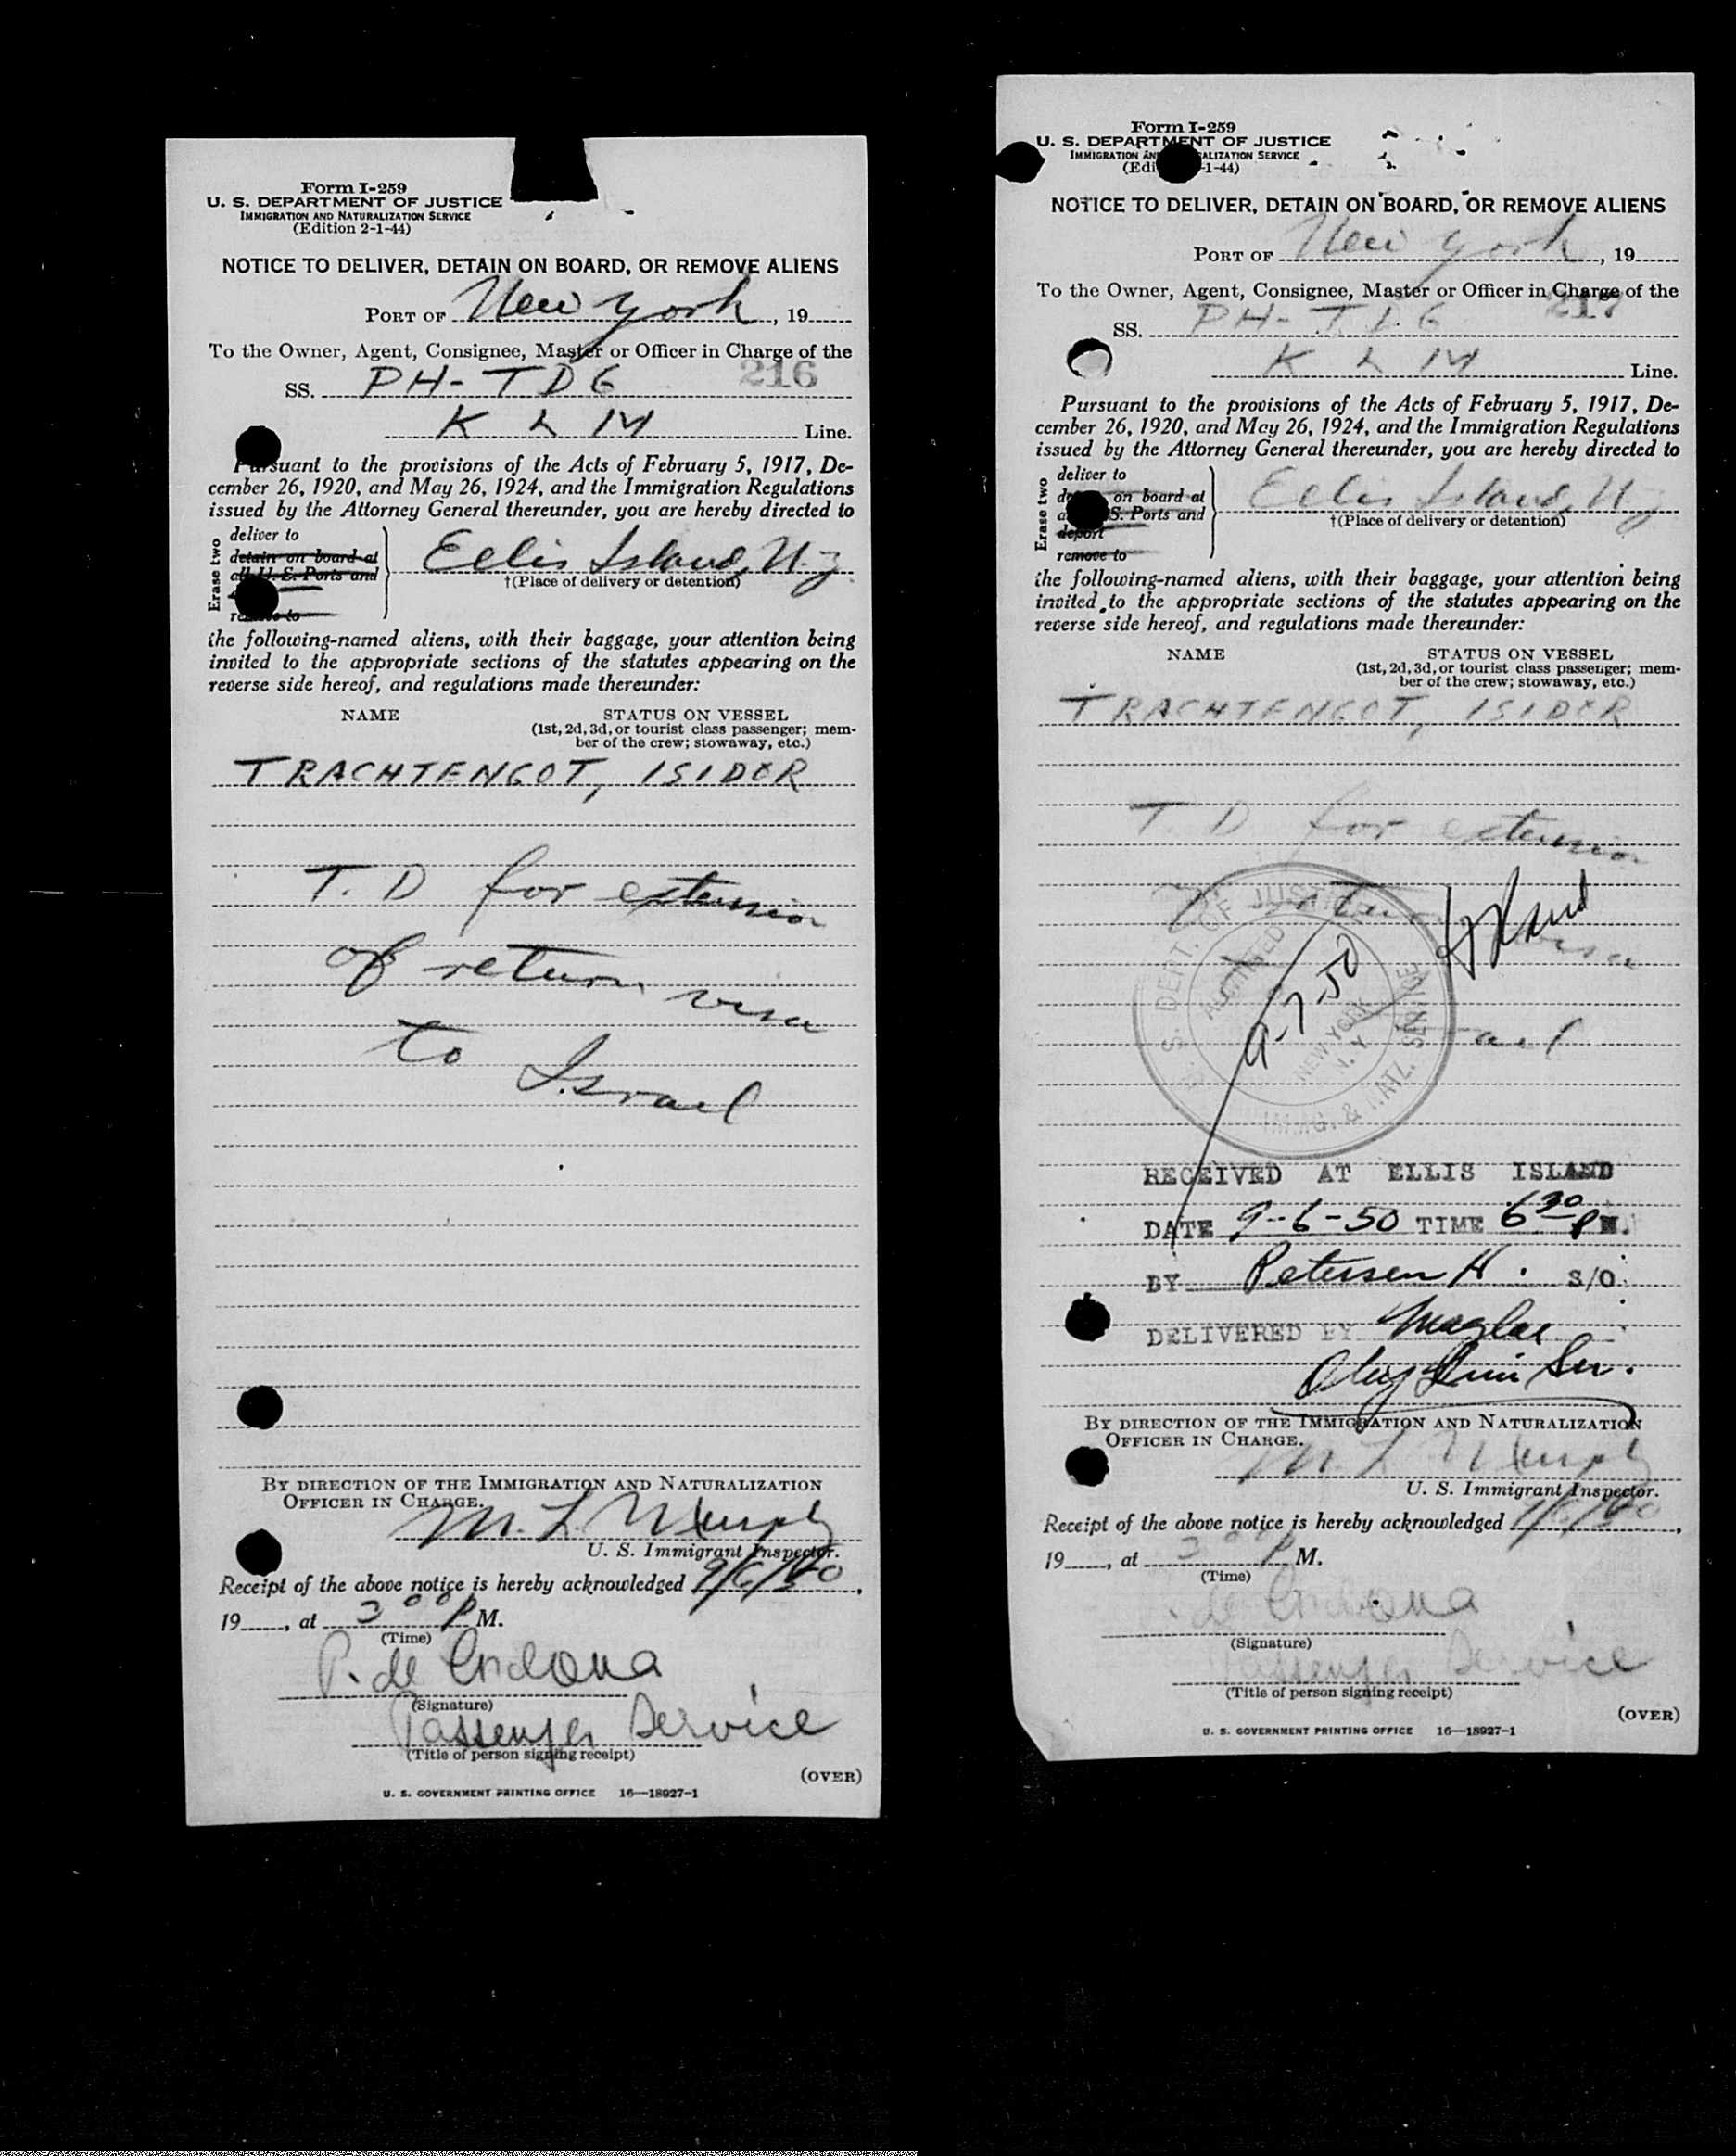 Form I-259
U. S. DEPARTMENT OF JUSTICE
IMMIGRATION AND NATURALIZATION SERVICE
(Edition 2-1-44)
NOTICE TO DELIVER, DETAIN ON BOARD, OR REMOVE ALIENS
PORT OF New York, 19
To the Owner, Agent, Consignee, Master or Officer in Charge of the
216
SS. PH-TDG
K L M Line.
Pursuant to the provisions of the Acts of February 5, 1917, De-
cember 26, 1920, and May 26, 1924, and the Immigration Regulations
issued by the Attorney General thereunder, you are hereby directed to
Erase two
deliver to
detain on board at
all U. S. Ports and
remove to
Ellis Island, N.J.
†(Place of delivery or detention)
the following-named aliens, with their baggage, your attention being
invited to the appropriate sections of the statutes appearing on the
reverse side hereof, and regulations made thereunder:
NAME STATUS ON VESSEL
(1st, 2d, 3d, or tourist class passenger; mem-
ber of the crew; stowaway, etc.)
TRACHTENGOT, ISIDOR
T. D for extension
of return visa
to Israel
BY DIRECTION OF THE IMMIGRATION AND NATURALIZATION
OFFICER IN CHARGE.
M. L. Murphy
U. S. Immigrant Inspector.
Receipt of the above notice is hereby acknowledged 9/6/50,
19, at 3 00 P M.
(Time)
P. de Cordova
(Signature)
Passenger Service
(Title of person signing receipt)
(OVER)
U. S. GOVERNMENT PRINTING OFFICE 16—18927-1
Form I-259
U. S. DEPARTMENT OF JUSTICE
IMMIGRATION AN ALIZATION SERVICE
(Edi -1-44)
NOTICE TO DELIVER, DETAIN ON BOARD, OR REMOVE ALIENS
PORT OF New York, 19
To the Owner, Agent, Consignee, Master or Officer in Charge of the
217
SS. PH-TDG
K L M Line.
Pursuant to the provisions of the Acts of February 5, 1917, De-
cember 26, 1920, and May 26, 1924, and the Immigration Regulations
issued by the Attorney General thereunder, you are hereby directed to
Erase two
deliver to
on board at
S. Ports and
deport
remove to
Ellis Island, N.J.
†(Place of delivery or detention)
the following-named aliens, with their baggage, your attention being
invited to the appropriate sections of the statutes appearing on the
reverse side hereof, and regulations made thereunder:
NAME STATUS ON VESSEL
(1st, 2d, 3d, or tourist class passenger; mem-
ber of the crew; stowaway, etc.)
TRACHTENGOT, ISIDOR
T. D for extension
U. S. DEPT. OF JUSTICE
ADMITTED
9-7-50
NEW YORK
N. Y.
IMMIG. & NATZ. SERVICE
RECEIVED AT ELLIS ISLAND
DATE 9-6-50 TIME 6 30 PM.
BY Petersen H. S/O
DELIVERED BY
BY DIRECTION OF THE IMMIGRATION AND NATURALIZATION
OFFICER IN CHARGE.
M. L. Murphy
U. S. Immigrant Inspector.
Receipt of the above notice is hereby acknowledged 9/6/50,
19, at 3 00 P M.
(Time)
P. de Cordova
(Signature)
Passenger Service
(Title of person signing receipt)
(OVER)
U. S. GOVERNMENT PRINTING OFFICE 16—18927-1